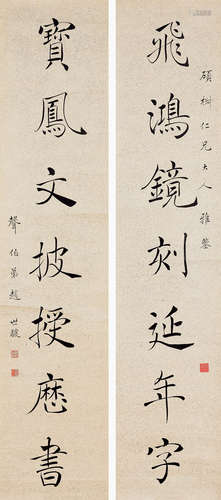 飛鴻鏡刻延年字
碩樹仁兄大人雅鑒
寶鳳文披授曆書
聲伯弟趙世駿